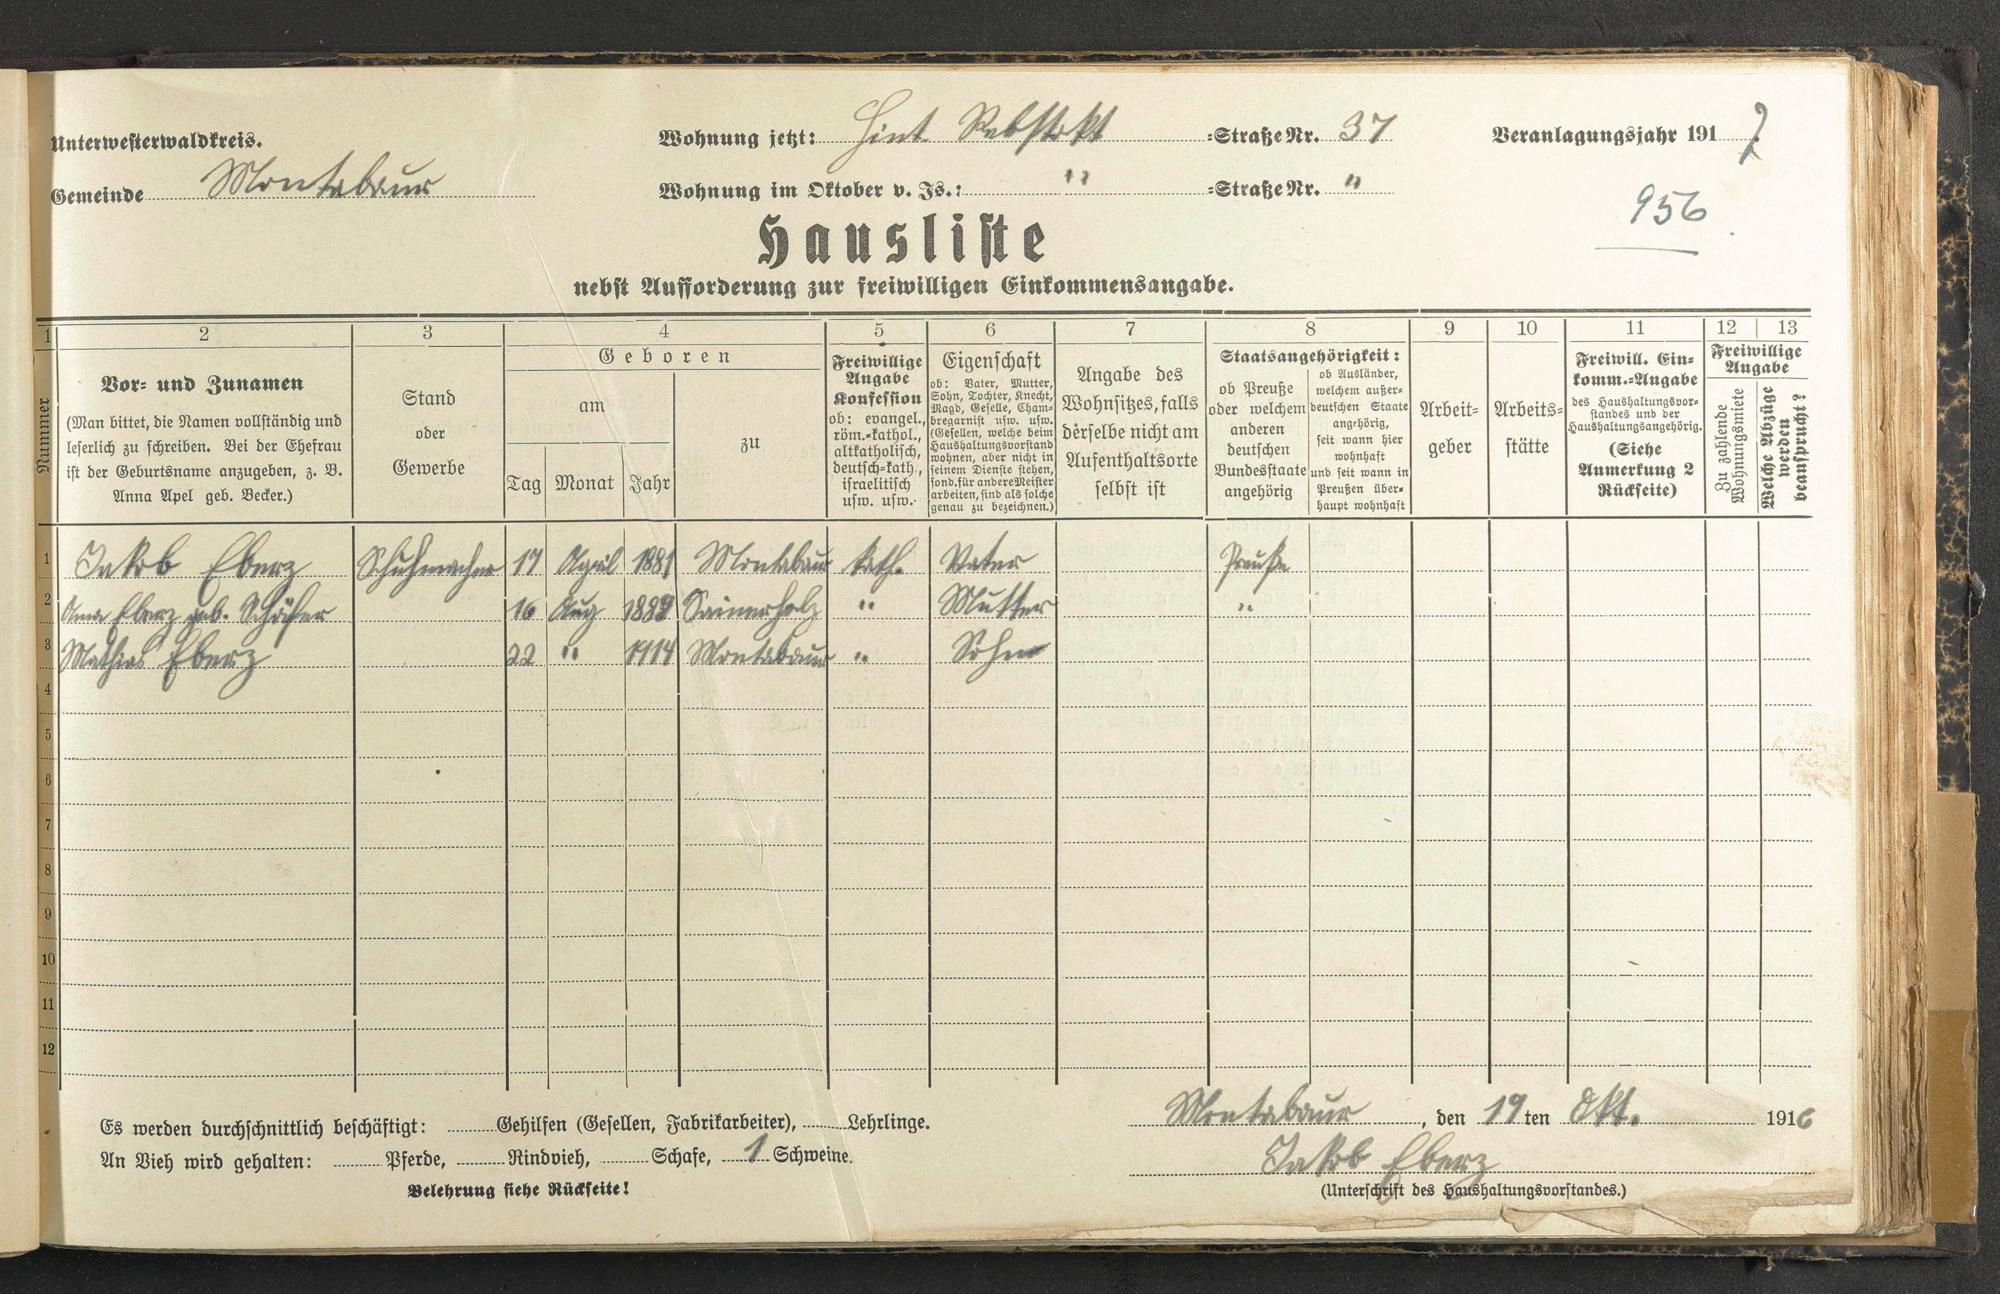 Unterwesterwaldkreis.
Wohnung jetzt: Hint. Rebstokt =Straße Nr. 37
Veranlagungsjahr 1917
Gemeinde Montabaur
Wohnung im Oktober v. Js.: " =Straße Nr. "
956
Hausliste
nebst Aufforderung zur freiwilligen Einkommensangabe.
1 2 3 4 5 6 7 8 9 10 11 12 13
Nummer
Vor- und Zunamen
(Man bittet, die Namen vollständig und
leserlich zu schreiben. Bei der Ehefrau
ist der Geburtsname anzugeben, z. B.
Anna Apel geb. Becker.)
Stand
oder
Gewerbe
Geboren
am
Tag Monat Jahr
zu
Freiwillige
Angabe
Konfession
ob: evangel.,
röm.-kathol.,
altkatholisch,
deutsch-kath.,
israelitisch
usw. usw.
Eigenschaft
ob: Vater, Mutter,
Sohn, Tochter, Knecht,
Magd, Geselle, Cham-
bregarnist usw. usw.
(Gesellen, welche beim
Haushaltungsvorstand
wohnen, aber nicht in
seinem Dienste stehen,
sond. für andere Meister
arbeiten, sind als solche
genau zu bezeichnen.)
Angabe des
Wohnsitzes, falls
derselbe nicht am
Aufenthaltsorte
selbst ist
Staatsangehörigkeit:
ob Preuße
oder welchem
anderen
deutschen
Bundesstaate
angehörig
ob Ausländer,
welchem außer-
deutschen Staate
angehörig,
seit wann hier
wohnhaft
und seit wann in
Preußen über-
haupt wohnhaft
Arbeit-
geber
Arbeits-
stätte
Freiwill. Ein-
komm.-Angabe
des Haushaltungsvor-
standes und der
Haushaltungsangehörig.
(Siehe
Anmerkung 2
Rückseite)
Freiwillige
Angabe
Zu zahlende
Wohnungsmiete
Welche Abzüge
werden
beansprucht?
1 Jakob Eberz Schuhmacher 17 April 1881 Montabaur kath. Vater Preuße
2 Anna Eberz geb. Schäfer 16 Aug 1889 Sainerholz " Mutter "
3 Mathias Eberz 22 " 1914 Montabaur " Sohn
4
5
6
7
8
9
10
11
12
Es werden durchschnittlich beschäftigt: Gehilfen (Gesellen, Fabrikarbeiter), Lehrlinge.
An Vieh wird gehalten: Pferde, Rindvieh, Schafe, 1 Schweine.
Belehrung siehe Rückseite!
Montabaur, den 19 ten Okt. 1916
Jakob Eberz
(Unterschrift des Haushaltungsvorstandes.)